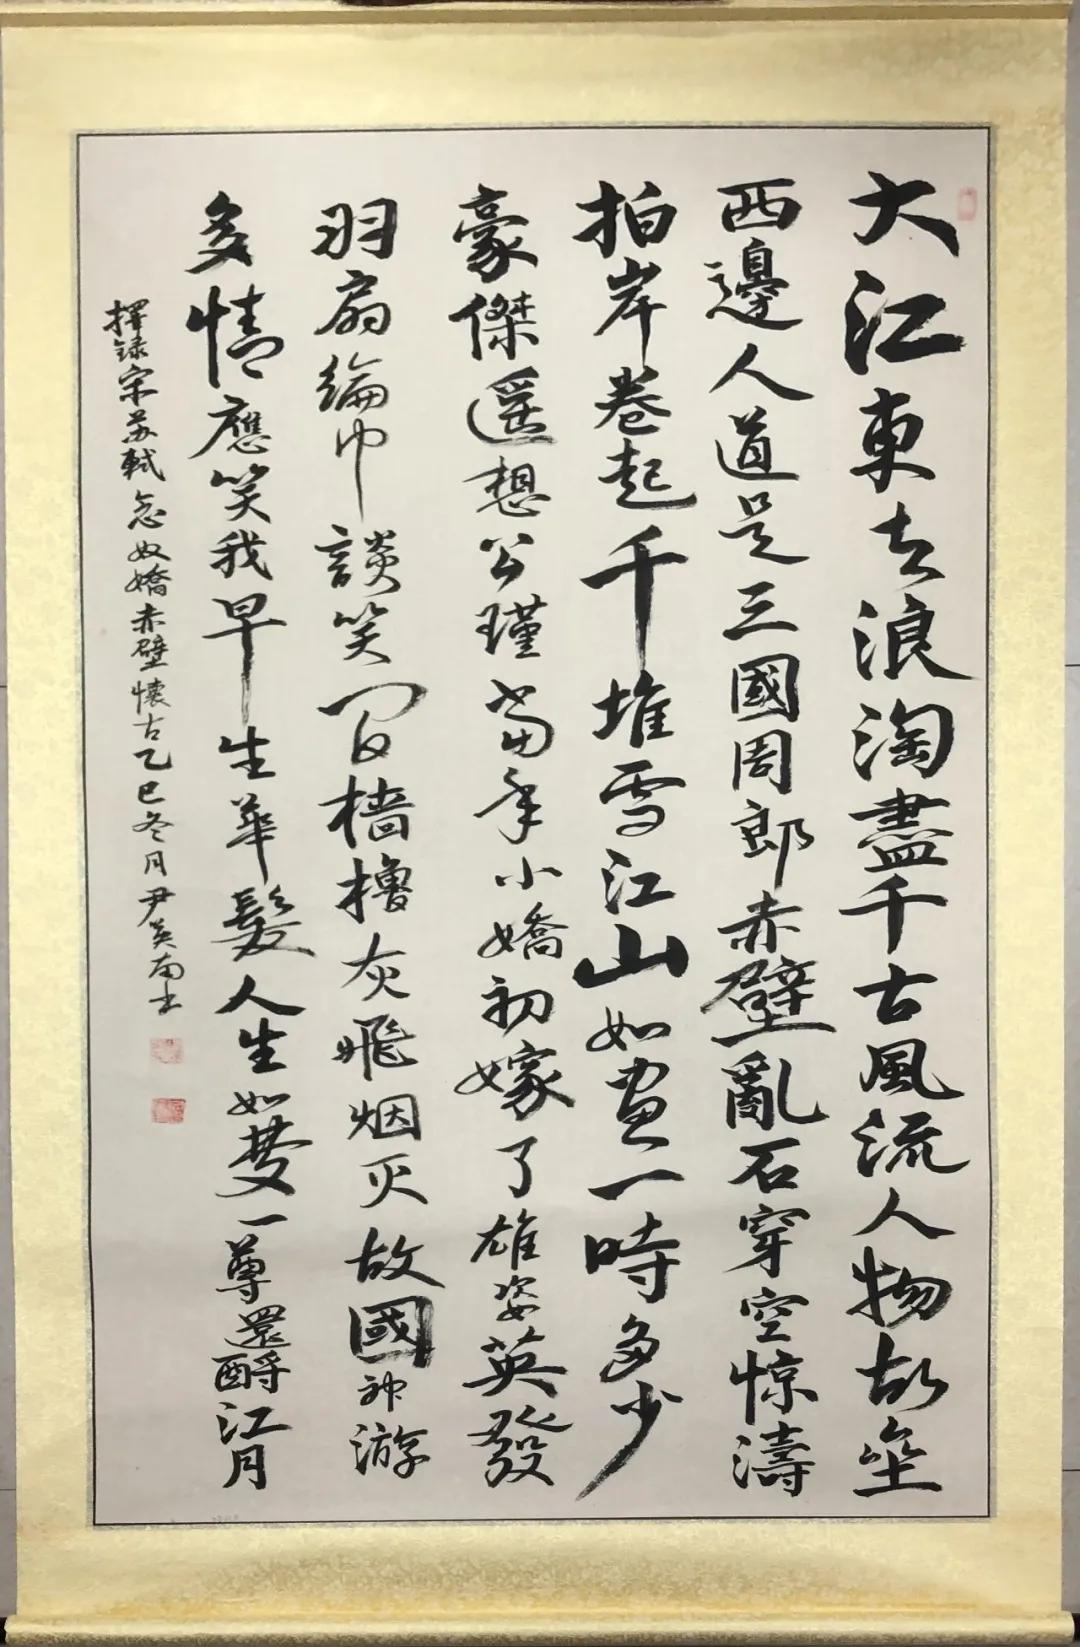 大江東去浪淘盡千古風流人物故壘
西邊人道是三國周郎赤壁亂石穿空惊濤
拍岸卷起千堆雪江山如畫一時多少
豪傑遥想公瑾當年小嬌初嫁了雄姿英發
羽扇綸巾談笑间檣櫓灰飛烟灭故國神游
多情應笑我早生華髮人生如夢一尊還酹江月
擇録宋苏軾念奴嬌赤壁懷古乙巳冬月尹英南书